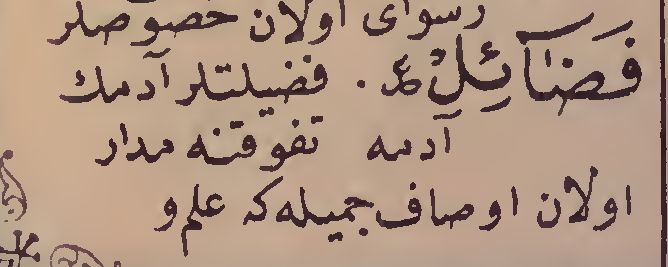 رسوای اولان خصوصلر
فَضَآئِلْ ع. فضیلتلر آدمك
آدمه تفوقنه مدار
اولان اوصاف جمیله که علم و